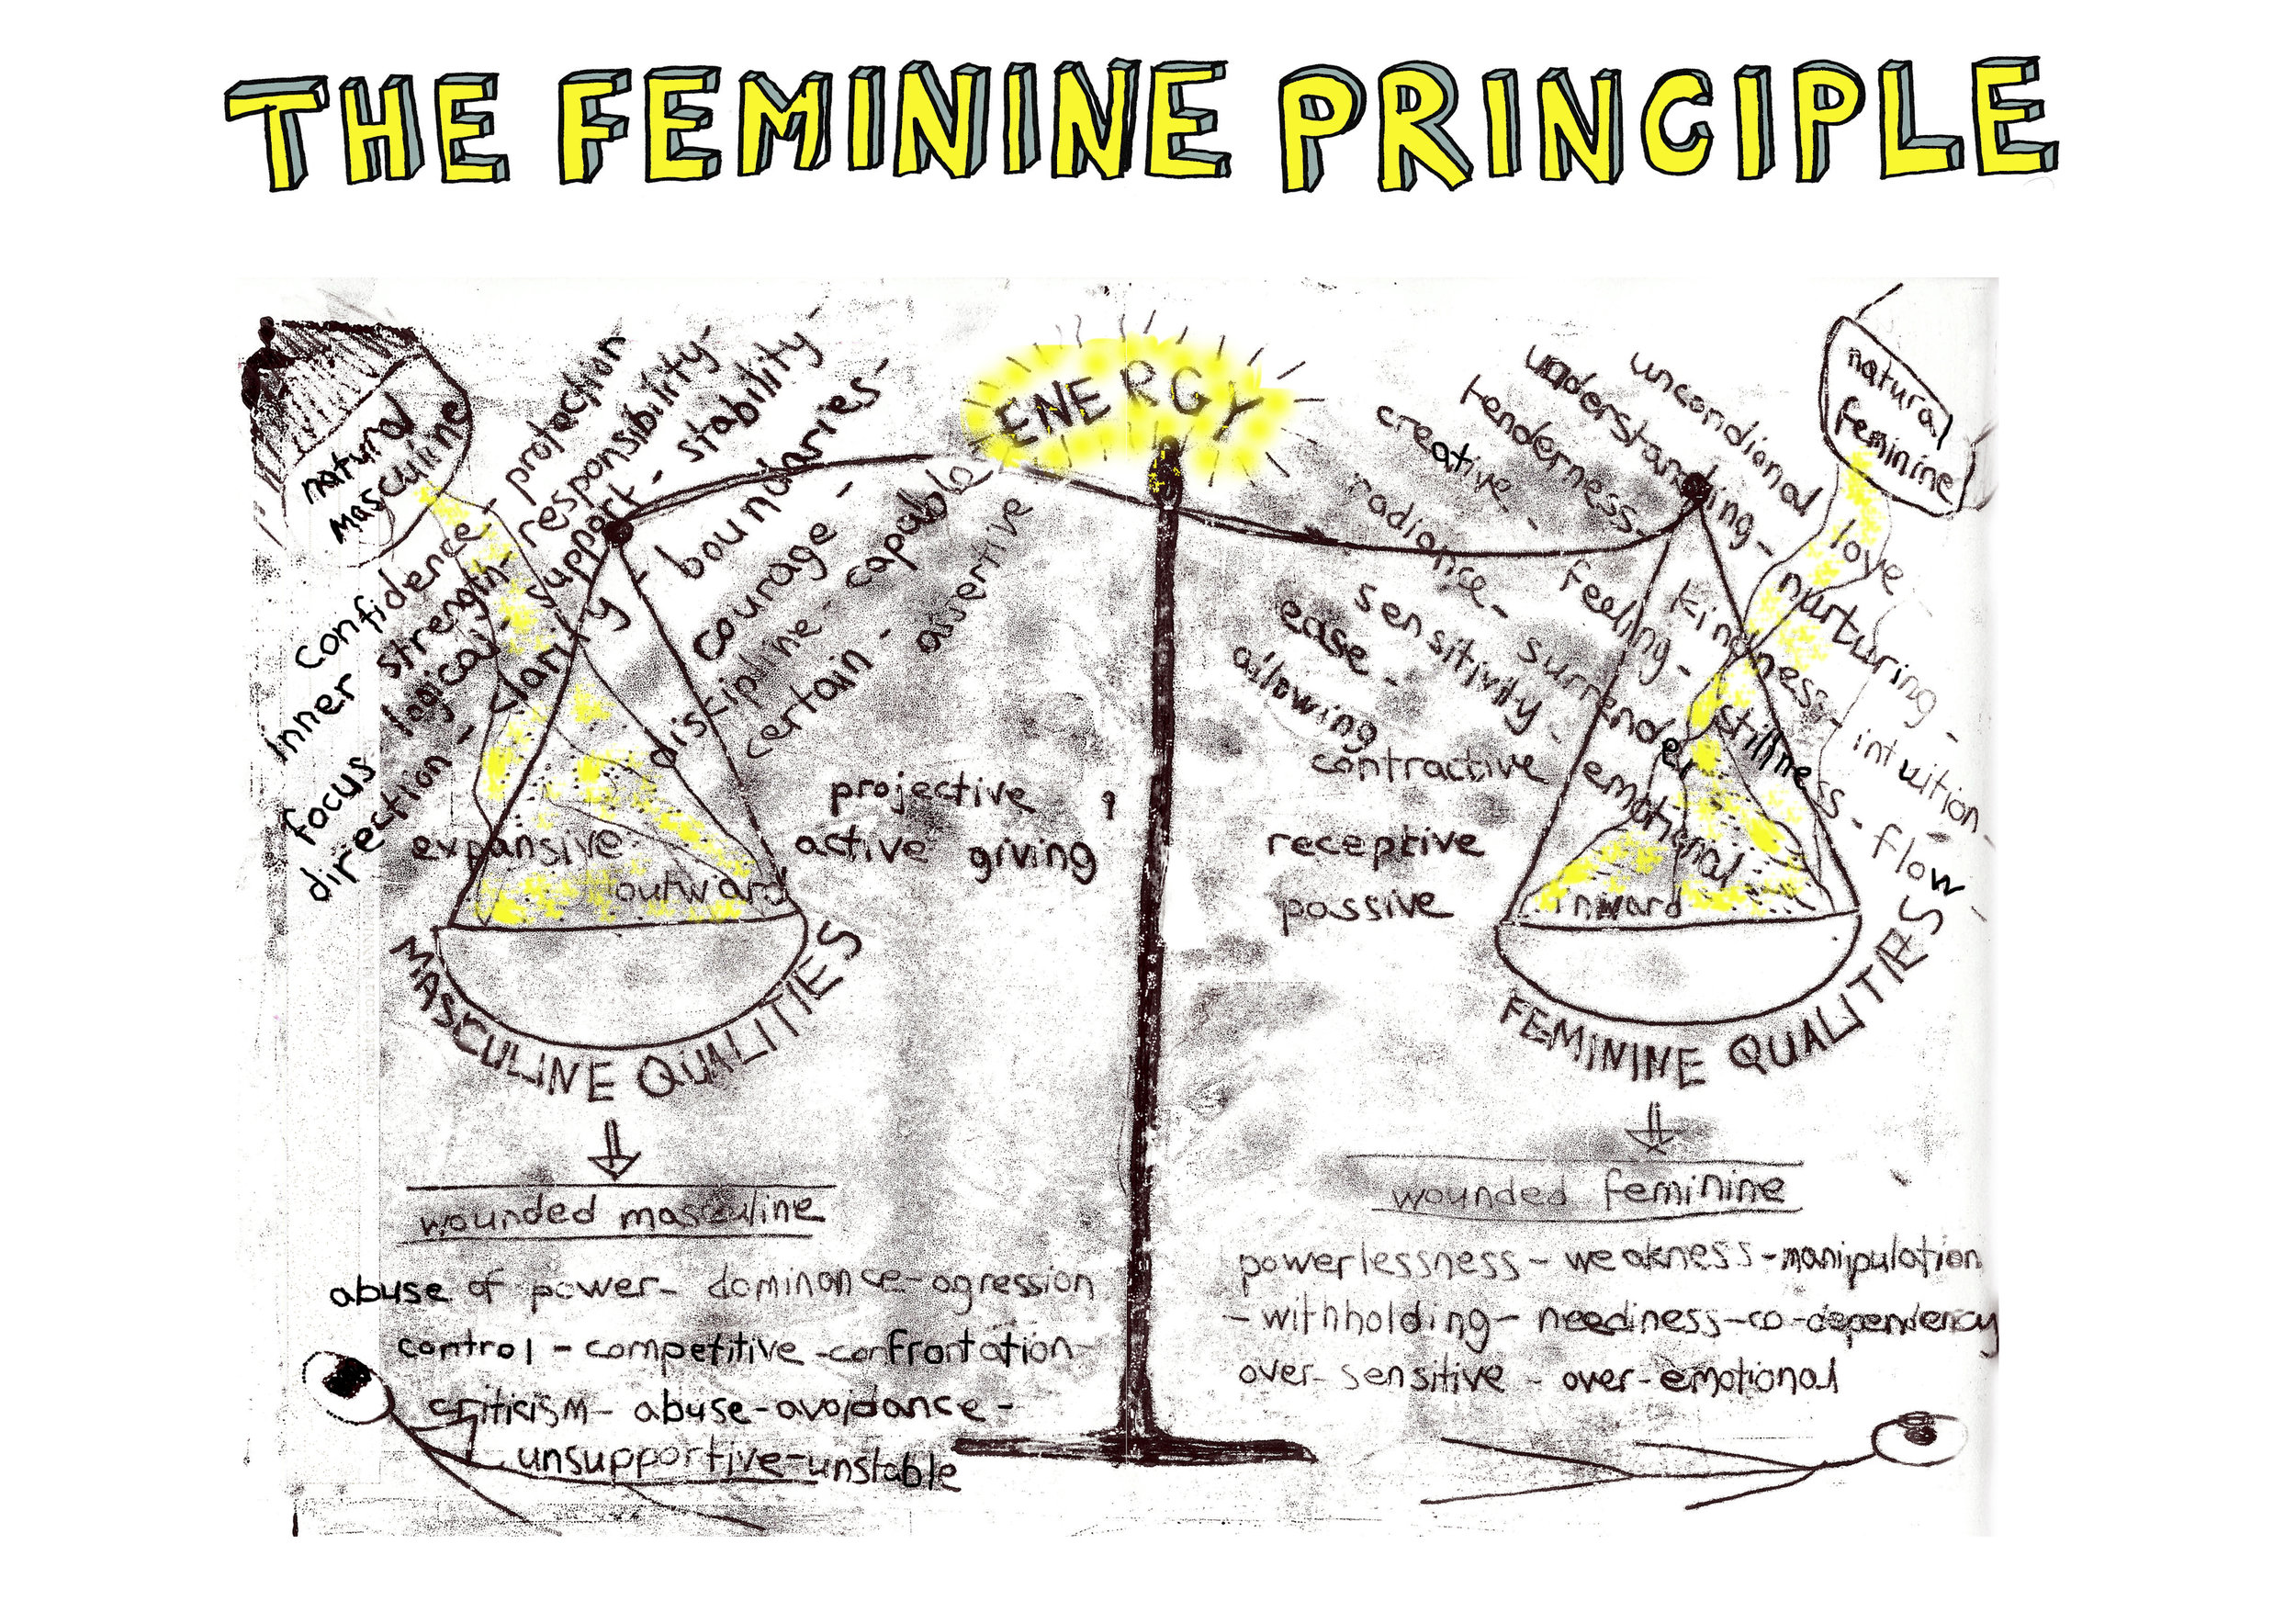 THE FEMININE PRINCIPLE
ENERGY
natural
masculine
inner confidence - protection
focus strength - responsibility -
logical - support - stability -
direction - clarity - boundaries -
courage -
discipline - capable
certain - assertive
expansive
outward
projective
active giving
MASCULINE QUALITIES
natural
feminine
uncondional love
understanding - nurturing -
tenderness - kindness - intuition -
creative - feeling - stillness - flow -
radiance - surrender
sensitivity - emotional
ease -
allowing
contractive
receptive
passive
inward
FEMININE QUALITIES
wounded masculine
abuse of power - dominance - agression
control - competitive - confrontation -
critisism - abuse - avoidance -
unsupportive - unstable
wounded feminine
powerlessness - weakness - manipulation
- withholding - neediness - co-dependency
over-sensitive - over-emotional